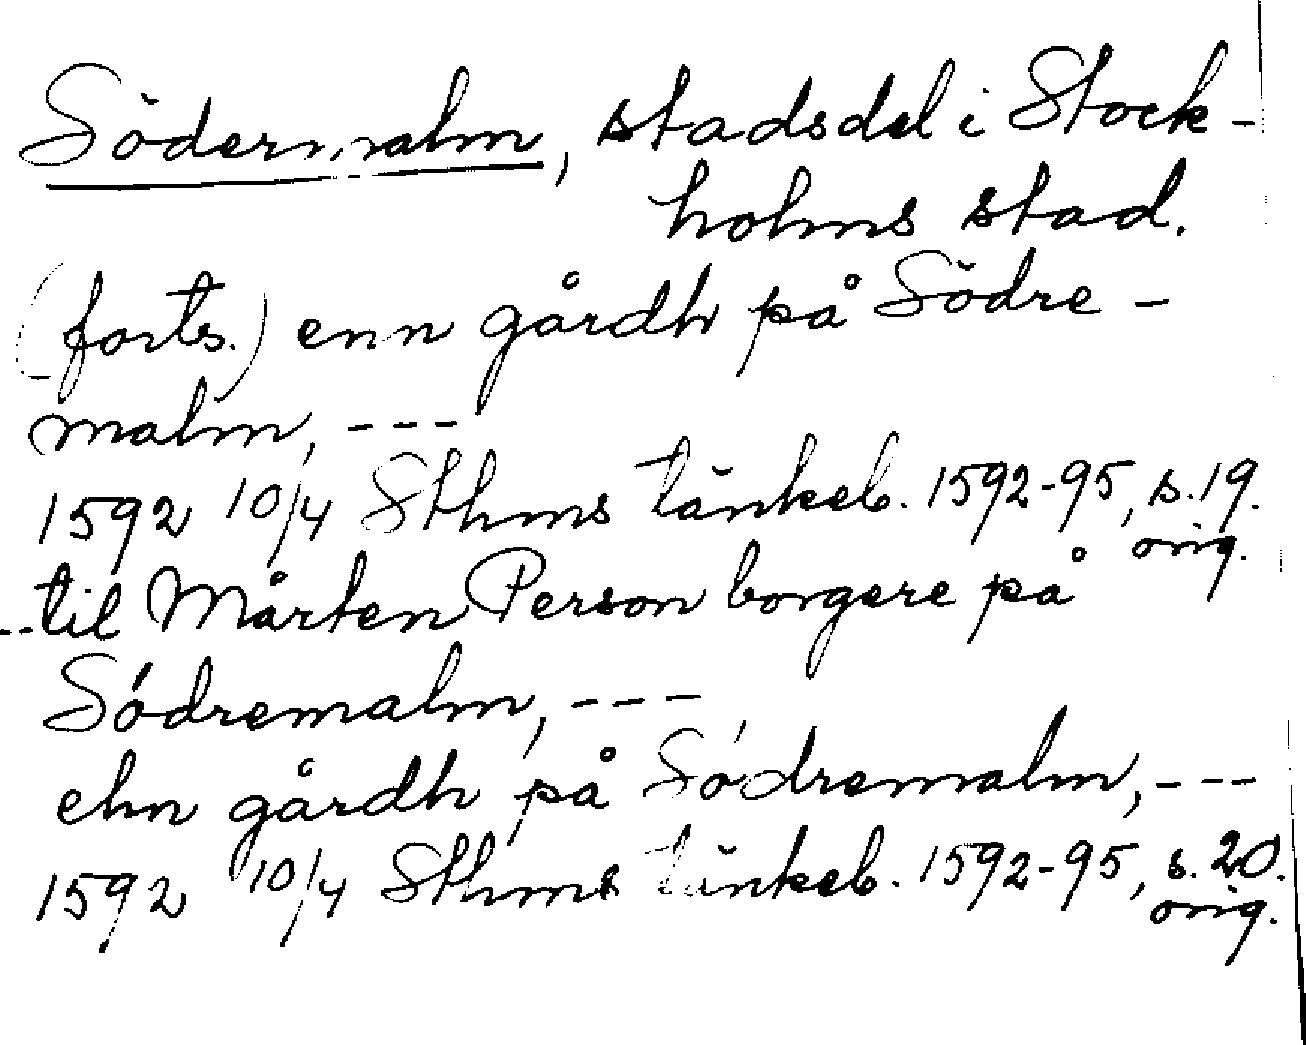 Södermalm, stadsdel i Stock-
holms stad.
(forts.) enn gårdh på Södre-
malm, ---
1592 10/4 Sthms tänkeb. 1592-95, s. 19.
orig.
--til Mårten Person borgere på
Södremalm, ---
ehn gårdh på Södremalm, ---
1592 10/4 Sthms tänkeb. 1592-95, s. 20.
orig.